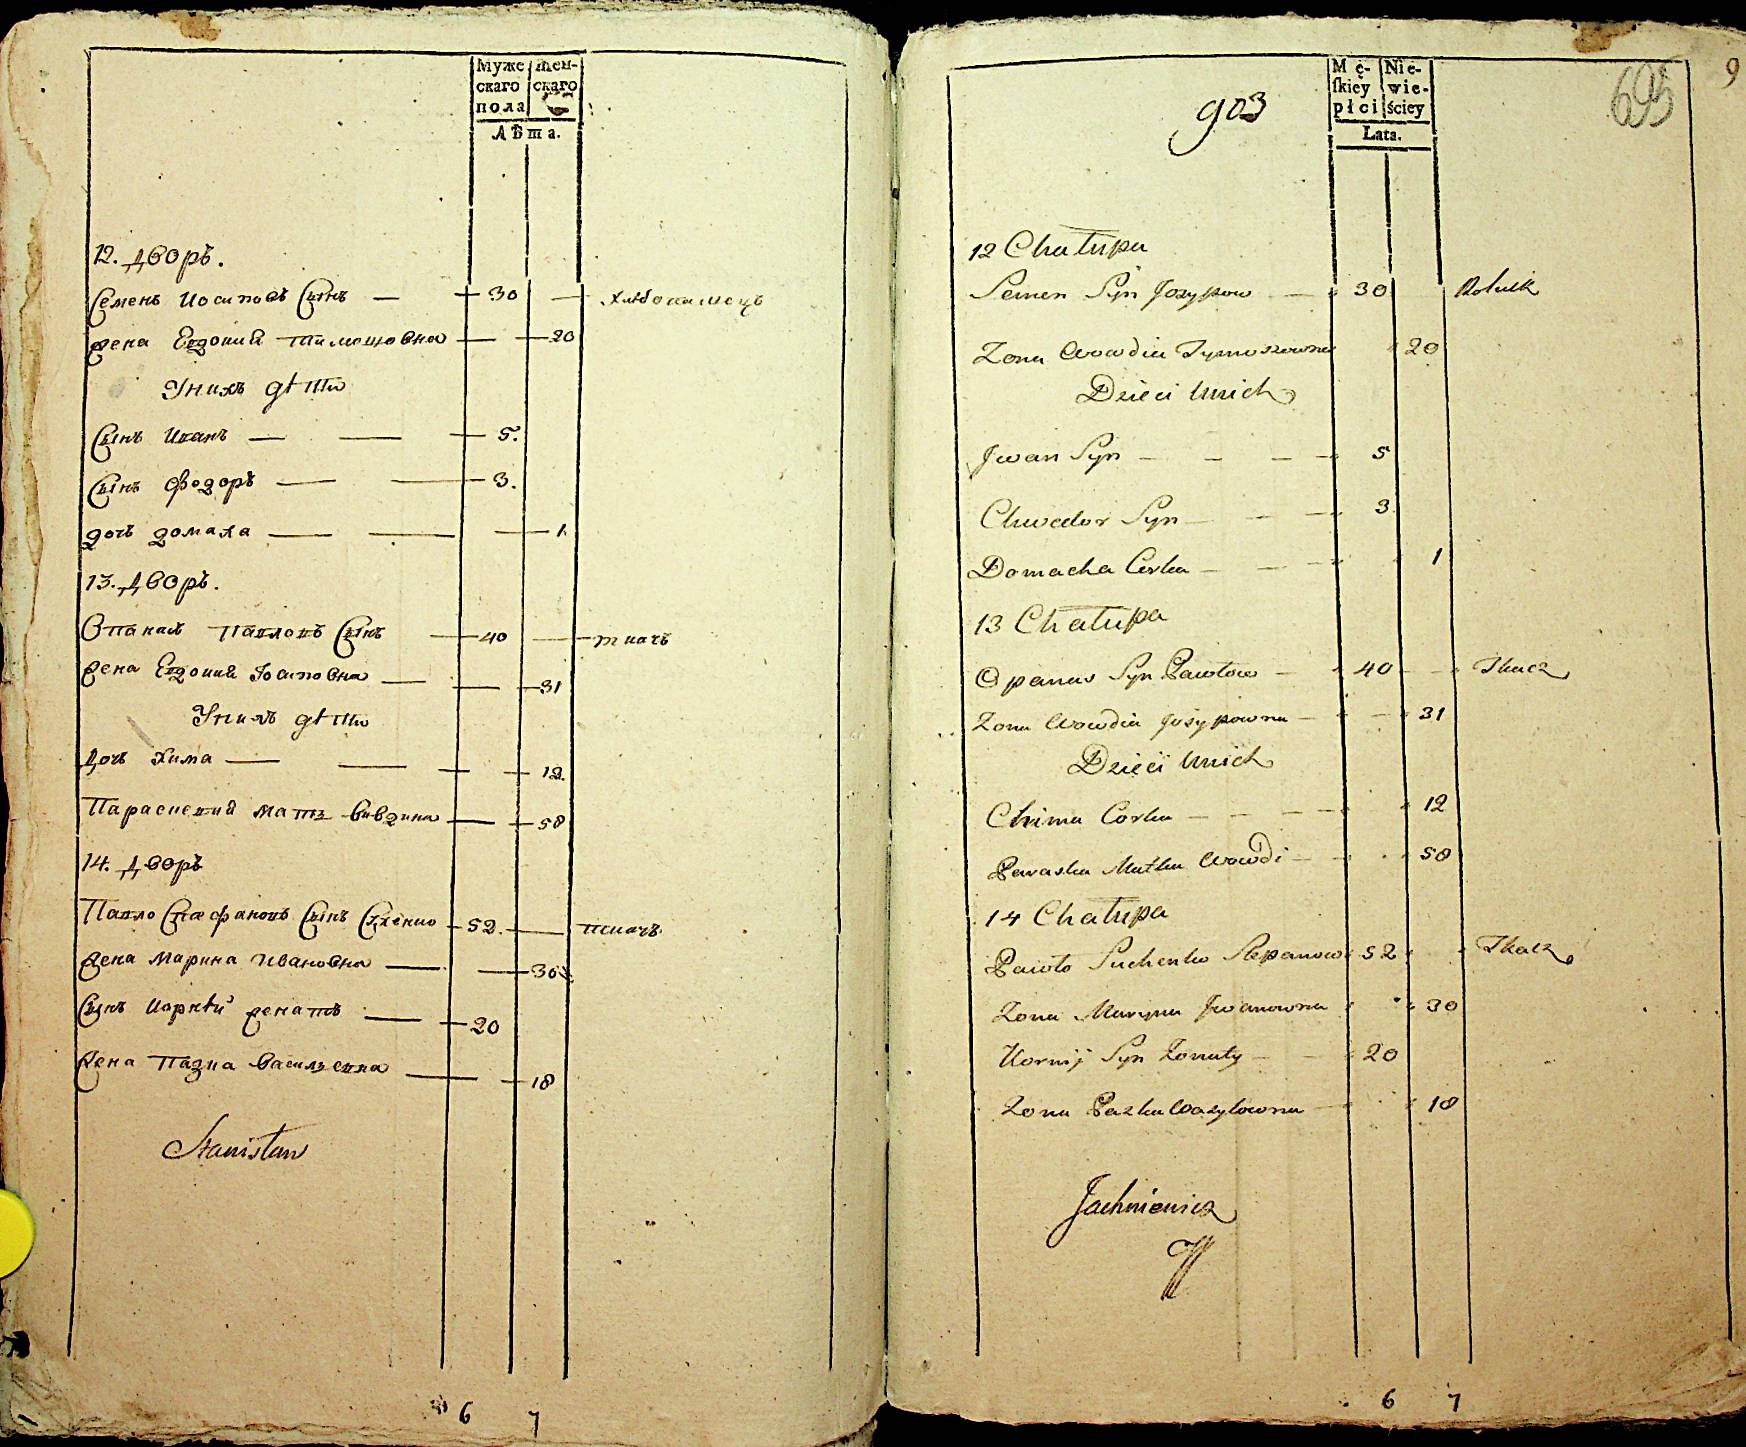 Муже
скаго
пола
Жен-
скаго
Лѣта.
12. дворъ.
Семенъ Иосиповъ Сынъ 30 хлѣбопашецъ
жена Евдокия Тимошовна 20
Унихъ дѣти
Сынъ Иванъ 5.
Сынъ Федоръ 3.
дочь домаха 1.
13. дворъ.
Опанасъ Павловъ Сынъ 40 ткачъ
жена Евдокия Иосиповна 31
Унихъ дѣти
дочь Хима 12.
Параскевия мать 58
14. дворъ
Павло Стефановъ Сынъ 52. ткачъ
жена Марина Ивановна 30
Сынъ Корнѣй женатъ 20
жена Пазка Васильевна 18
Stanisław
6 7
903
Mę-
ſkiey
płci
Nie-
wie-
ściey
Lata.
695
9
12 Chałupa
Semen Syn Jozypow 30 Rolnik
Zona Wowdia Tymoszowna 20
Dzieci Unich
Jwan Syn 5
Chwedor Syn 3
Domacha Corka 1
13 Chałupa
Opanas Syn Pawłow 40 Tkacz
Zona Wowdia Jozypowna 31
Dzieci Unich
Chima Corka 12
Paraska Matka Wowdi 58
14 Chałupa
Pawło Suchenko Stepanow 52 Tkacz
Zona Maryna Jwanowna 30
Kornij Syn Zonaty 20
Zona Pazka Wasylowna 18
Jachniewicz
6 7